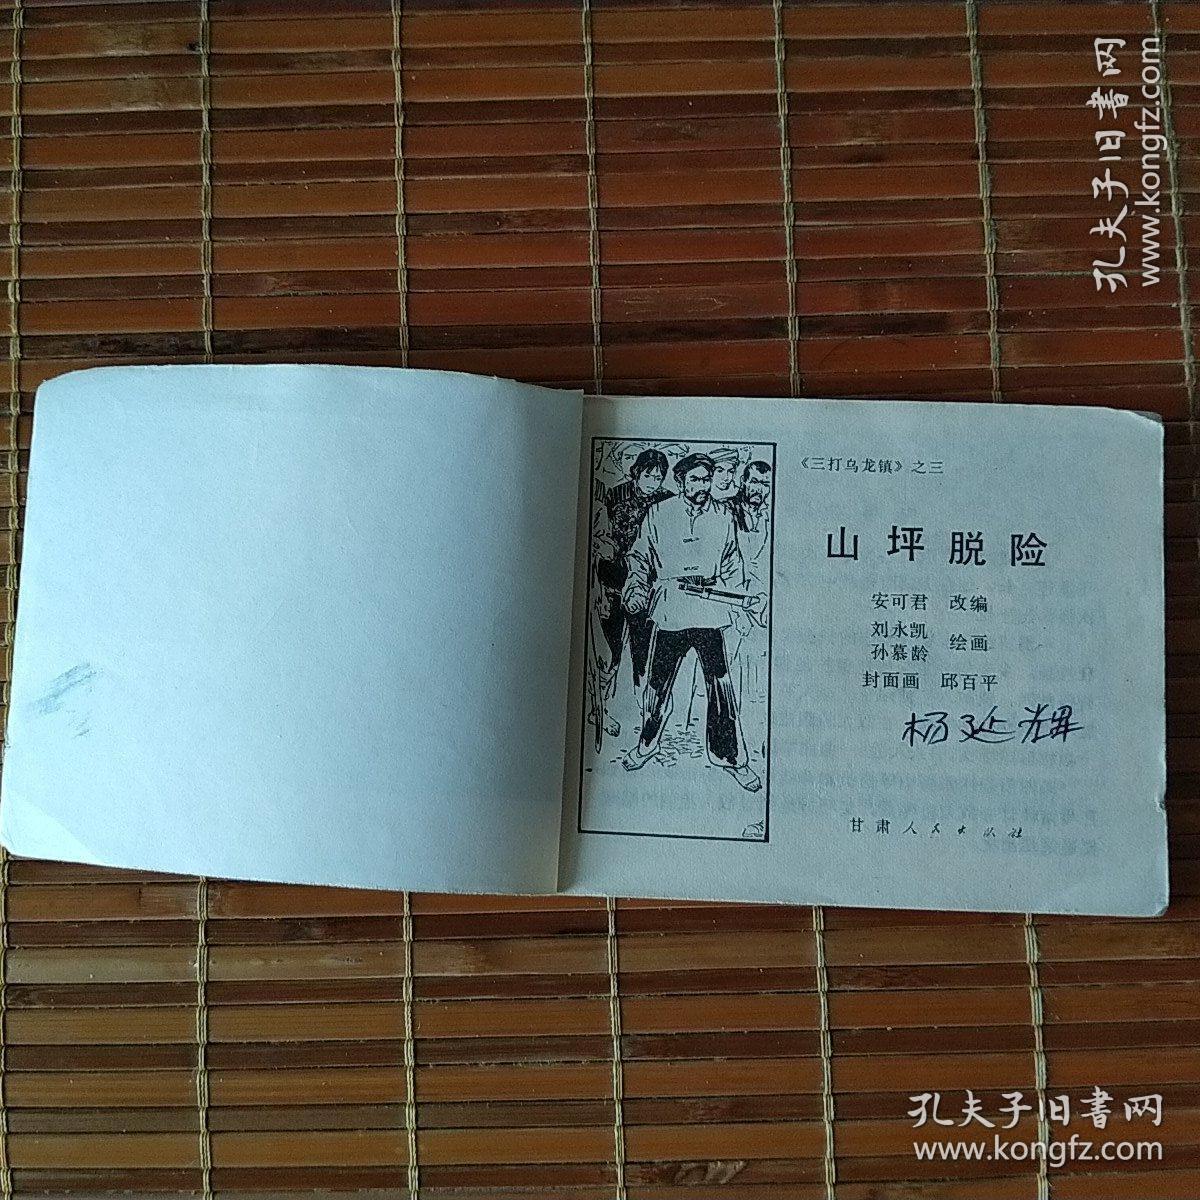 《三打乌龙镇》之三
山坪脱险
安可君 改编
刘永凯
孙慕龄 绘画
封面画 邱百平
杨延辉
甘肃人民出版社
孔夫子旧書网
www.kongfz.com
孔夫子旧書网
www.kongfz.com